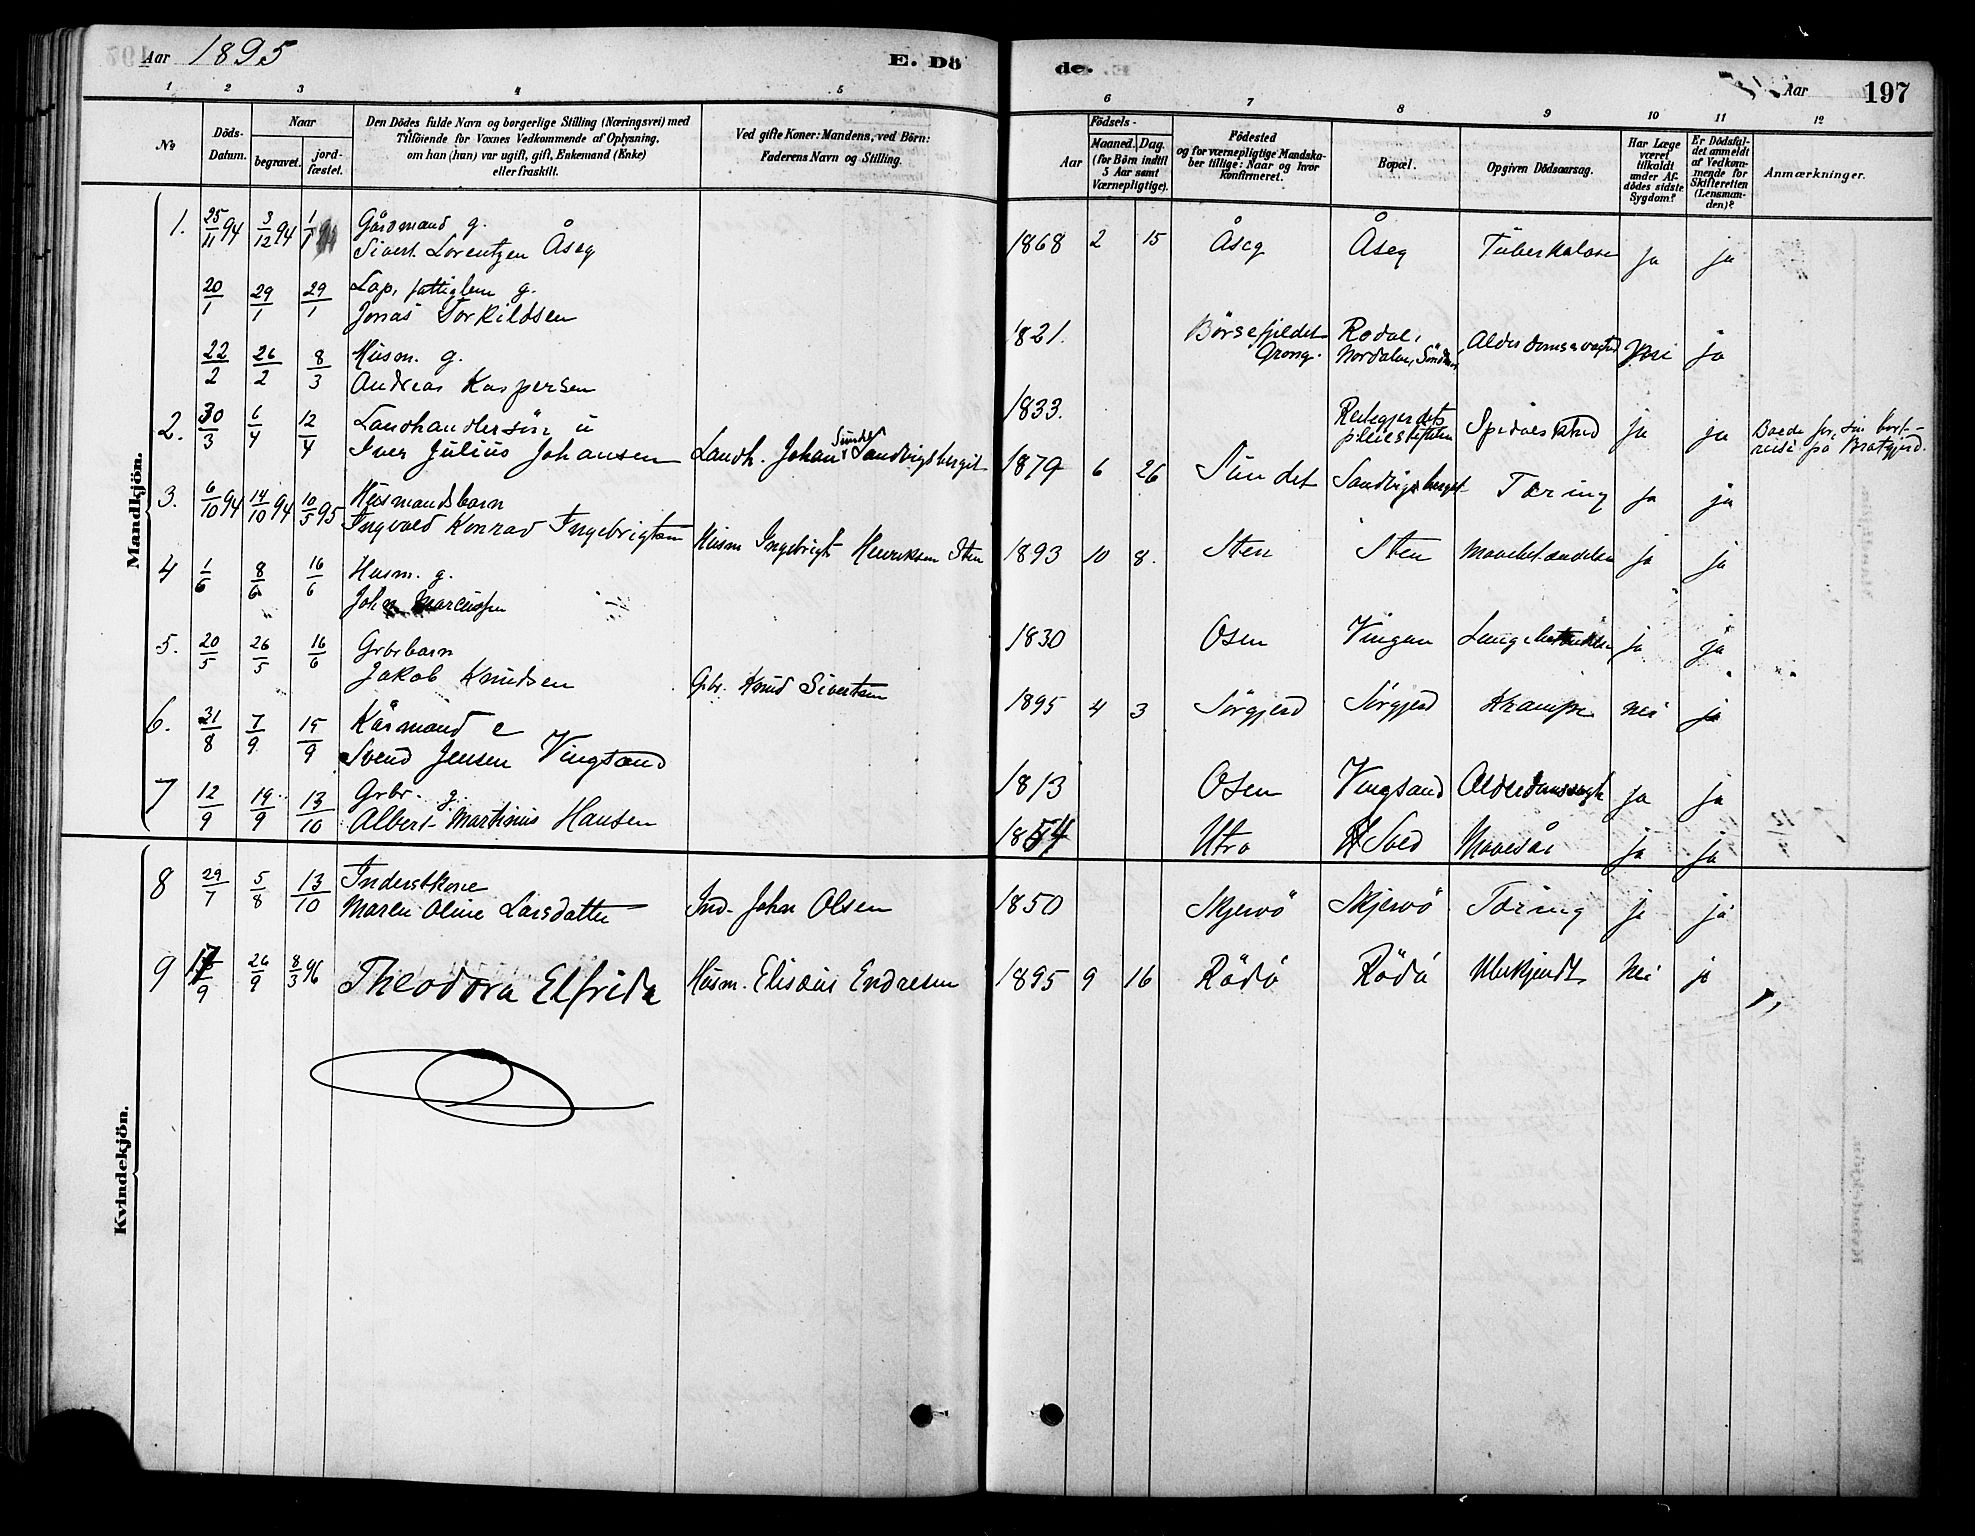 Aar 1895
E. Dö
de.
Aar 197
1 2 3 4 5 6 7 8 9 10 11 12
No
Döds-
Datum.
Naar
begravet.
jord-
fæstet.
Den Dödes fulde Navn og borgerlige Stilling (Næringsvei) med
Tilföiende for Voxnes Vedkommende af Oplysning,
om han (hun) var ugift, gift, Enkemand (Enke)
eller fraskilt.
Ved gifte Koner: Mandens, ved Börn:
Faderens Navn og Stilling.
Födsels-
Aar
Maaned. Dag.
(for Börn indtil
5 Aar samt
Værnepligtige).
Födested
og for værnepligtige Mandska-
ber tillige: Naar og hvor
konfirmeret.
Bopæl.
Opgiven Dödsaarsag.
Har Læge
været
tilkaldt
under Af-
dödes sidste
Sygdom?
Er Dödsfal-
det anmeldt
af Vedkom-
mende for
Skifteretten
(Lensman-
den)?
Anmærkninger.
Mandkjön.
1. 25/11 94 3/12 94 1/1 Gårdmand g.
Sivert Lorentzen Åseg 1868 2 15 Åseg Åseg Tuberkulose ja ja
20/1 29/1 29/1 Lap, fattiglem g.
Jonas Torkildsen 1821. Börsefjeldet Grong. Rodal, Nordalen, ja
22/2 26/2 8/3 Husm. g.
Andreas Kaspersen 1833. Reitgjerdets pleiestiftelse Spedalskhed ja ja
2. 30/3 6/4 12/4 Landhandlersön u
Iver Julius Johansen Landh. Johan Sundet Sandvigsberget 1879 6 26 Sundet Sandvigsberget Tæring ja ja Boede før sin bort-
reise på Bratgjerd.
3. 6/10 94 14/10 94 10/5 95 Husmandsbarn
Ingvald Konrad Ingebrigtsen Husm Ingebrigt Henriksen Sten 1893 10 8. Sten Sten Mavebetændelse ja ja
4 1/6 8/6 16/6 Husm. g.
John Marcussen 1830 Osen Vingen Lungebetændelse ja ja
5. 20/5 26/5 16/6 Grbrbarn
Jakob Knudsen Gbr. Knud Sivertsen 1895 4 3 Sörgjerd Sörgjerd Krampe nei ja
6. 31/8 7/9 15/9 Kårmand e
Svend Jensen Vingsand 1813 Osen Vingsand ja ja
7 12/9 19/9 13/10 Grbr. g.
Albert Martinus Hansen 1854 Utro Sved Mavesår ja ja
Kvindekjön.
8 29/7 5/8 13/10 Inderstkone
Maren Oline Larsdatter Ind. John Olsen 1850 Skjervö Skjervö Tæring ja ja
9 17/9 26/9 8/3 96 Theodora Elfrida Husm. Elisæus Endresen 1895 9 16 Rödö Rödö Ubekjendt nei ja